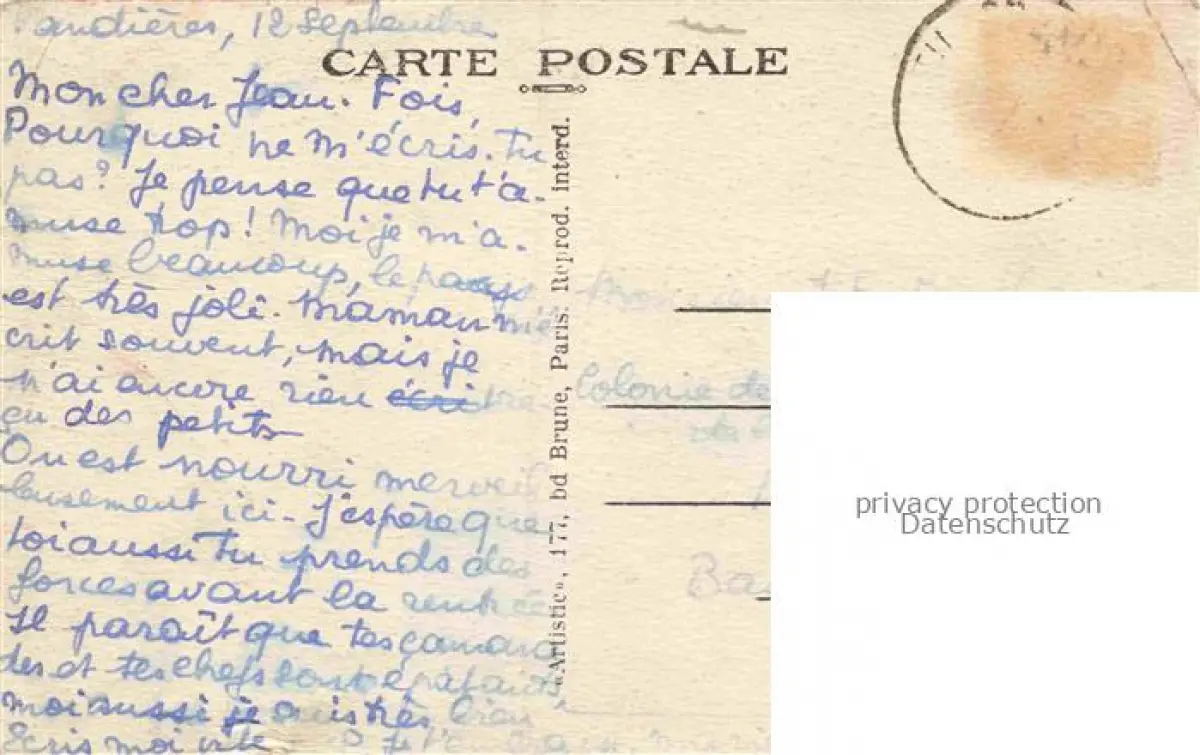 Vandières, 12 Septembre
CARTE POSTALE
Mon cher Jean. Fois,
Pourquoi ne m'écris. tu
pas? Je pense que tu t'a-
muse trop! Moi je m'a-
muse beaucoup, le pays
est très joli. Maman m'é
crit souvent, mais je
n'ai ancore rien écri re-
çu des petits
On est nourri merveil
leusement ici. J'espère que
toi aussi tu prends des
forces avant la rentrée
Il paraît que tes camara
des et tes chefs sont épatants,
moi aussi je suis très bien
Ecris moi vite
«Artistic», 177, bd Brune, Paris. Reprod. interd.
Monsieur
Colonie de
Ba
privacy protection
Datenschutz